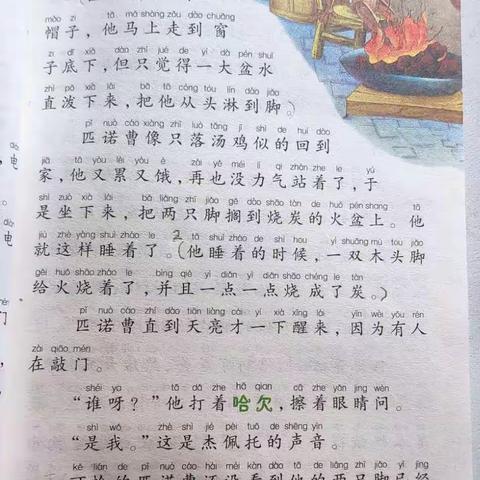 mào zi tā mǎ shàng zǒu dào chuāng
帽子，他马上走到窗
zi dǐ xià dàn zhǐ jué de yí dà pén shuǐ
子底下，但只觉得一大盆水
zhí pō xià lái bǎ tā cóng tóu lín dào jiǎo
直泼下来，把他从头淋到脚。）
pǐ nuò cáo xiàng zhī luò tāng jī shì de huí dào
匹诺曹像只落汤鸡似的回到
jiā tā yòu lèi yòu è zài yě méi lì qi zhàn zhe le yú
家，他又累又饿，再也没力气站着了，于
shì zuò xià lái bǎ liǎng zhī jiǎo gē dào shāo tàn de huǒ pén shang tā
是坐下来，把两只脚搁到烧炭的火盆上。他
jiù zhè yàng shuì zháo le tā shuì zháo de shí hou yì shuāng mù tou jiǎo
就这样睡着了。2（他睡着的时候，一双木头脚
gěi huǒ shāo zháo le bìng qiě yì diǎn yì diǎn shāo chéng le tàn
给火烧着了，并且一点一点烧成了炭。）
pǐ nuò cáo zhí dào tiān liàng cái yí xià xǐng lái yīn wèi yǒu rén
匹诺曹直到天亮才一下醒来，因为有人
zài qiāo mén
在敲门。
shéi ya tā dǎ zhe hā qian cā zhe yǎn jing wèn
“谁呀？”他打着哈欠，擦着眼睛问。
shì wǒ zhè shì jié pèi tuō de shēng yīn
“是我。”这是杰佩托的声音。
kě lián de pǐ nuò cáo hái méi kàn dào tā de liǎng zhī jiǎo yǐ jīng
可怜的匹诺曹还没看到他的两只脚已经
电
电
门